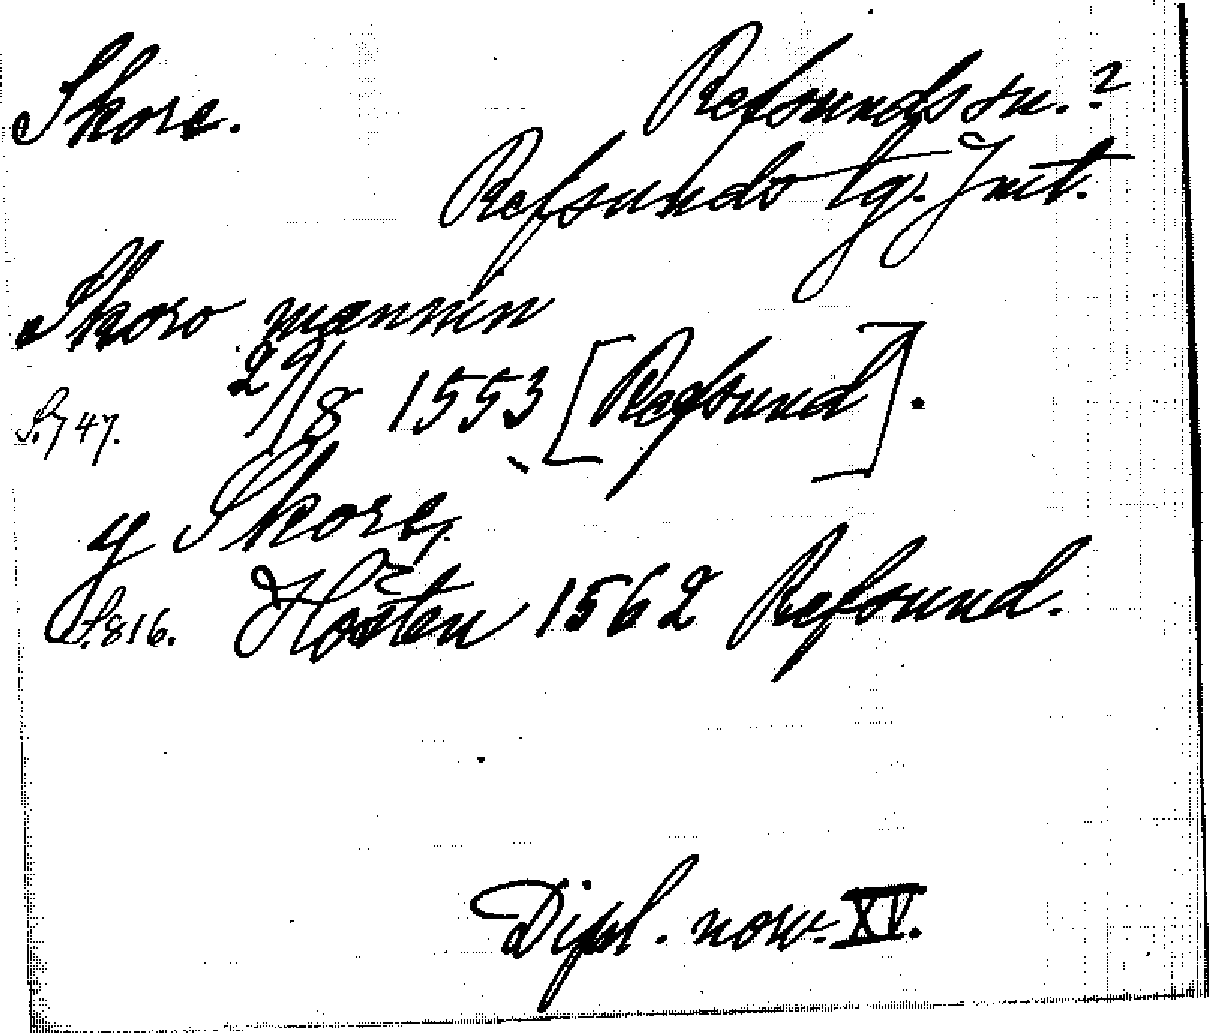 Skore. Refsunds sn.?
Refsunds tg. Jmt.
Skoro mannin
29/8 1553 [Refsund].
S. 747.
y Skore,
S. 816. Hösten 1562 Refsund.
Dipl. norv. XV.